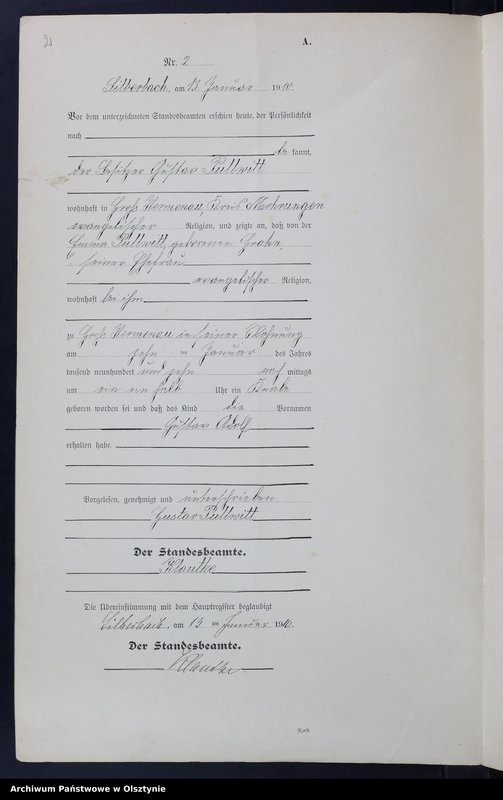 2
A.
Nr. 2
Silberbach, am 13 Januar 1910.
Vor dem unterzeichneten Standesbeamten erschien heute, der Persönlichkeit
nach
be kannt,
der Besitzer Gustav Pullwitt
wohnhaft in Groß Hermenau, Kreis Mohrungen
evangelischer Religion, und zeigte an, daß von der
Emma Pullwitt, geborenen
seiner Ehefrau
evangelischer Religion,
wohnhaft bei ihm
zu Groß Hermenau in seiner Wohnung
am zehn ten Januar des Jahres
tausend neunhundert und zehn nach mittags
um ein ein halb Uhr ein Knabe
geboren worden sei und daß das Kind die Vornamen
Gustav Adolf
erhalten habe.
Vorgelesen, genehmigt und unterschrieben
Gustav Pullwitt
Der Standesbeamte.
Klautke
Die Übereinstimmung mit dem Hauptregister beglaubigt
Silberbach, am 13 ten Januar 1910.
Der Standesbeamte.
Klautke.
Archiwum Państwowe w Olsztynie